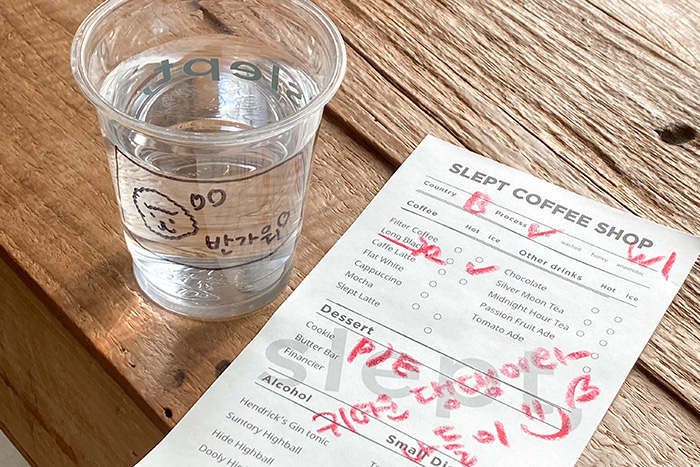 slept.
slept.
00
반가워
SLEPT COFFEE SHOP
Country B Process washed honey anaerobic
Coffee Hot Ice
Filter Coffee
Long Black
Caffe Latte
Flat White
Cappucino
Mocha
Slept Latte
Other drinks Hot Ice
Chocolate
Silver Moon Tea
Midnight Hour Tea
Passion Fruit Ade
Tomato Ade
Dessert
Cookie
Butter Bar
Financier
slept.
PIE 댕댕이라
귀여운
Alcohol
Hendrick's Gin tonic
Suntory Highball
Hide Highball
Small Di